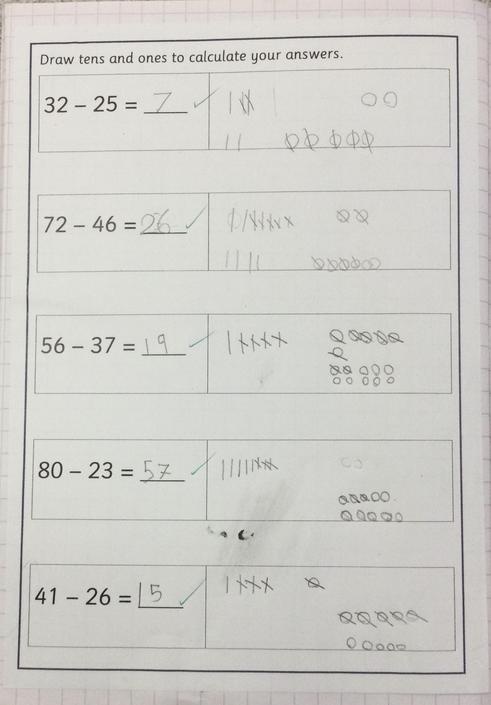 Draw tens and ones to calculate your answers.
32 – 25 = 7
72 – 46 = 26
56 – 37 = 19
80 – 23 = 57
41 – 26 = 15